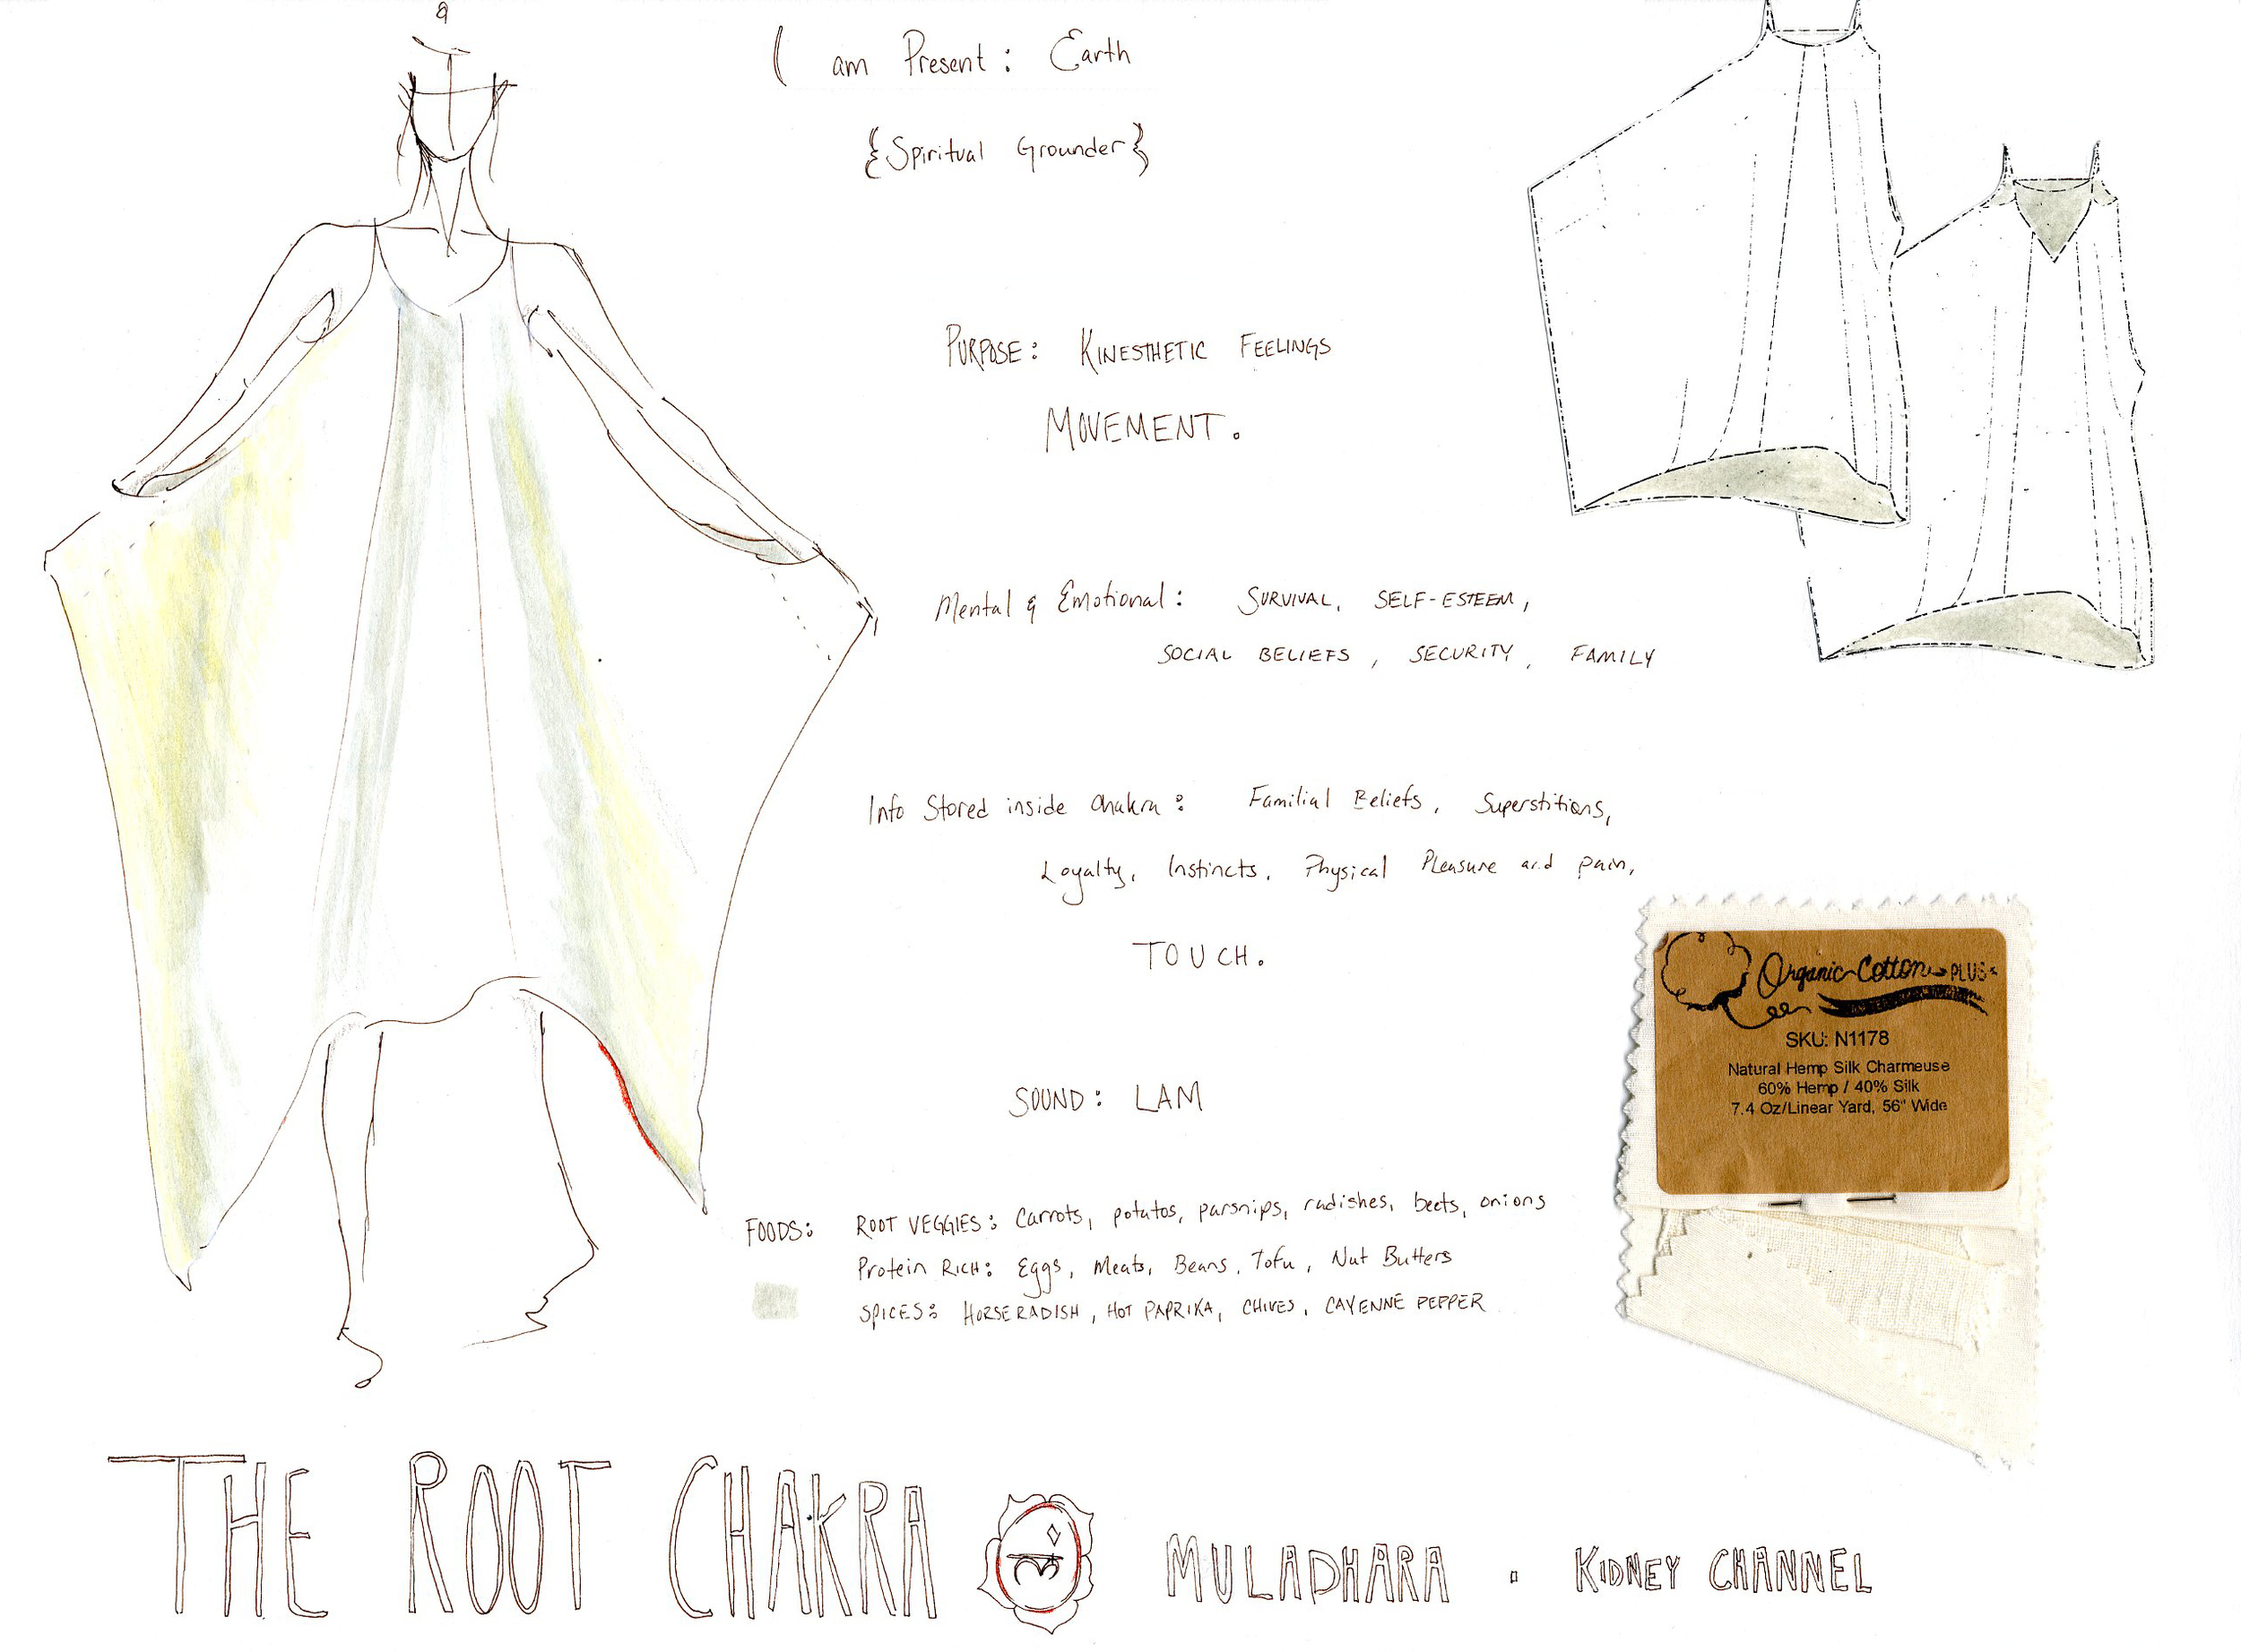 I am Present: Earth
{Spiritual Grounder}
PURPOSE: KINESTHETIC FEELINGS
MOVEMENT.
Mental & Emotional: SURVIVAL, SELF-ESTEEM,
SOCIAL BELIEFS, SECURITY, FAMILY
Info Stored inside Chakra: Familial Beliefs, Superstitions,
Loyalty, Instincts, Physical Pleasure and pain,
TOUCH.
Organic Cotton PLUS
SKU: N1178
Natural Hemp Silk Charmeuse
60% Hemp / 40% Silk
7.4 Oz/Linear Yard, 56" Wide
SOUND: LAM
FOODS: ROOT VEGGIES: Carrots, potatos, parsnips, radishes, beets, onions
Protein RICH: Eggs, Meats, Beans, Tofu, Nut Butters
SPICES: HORSERADISH, HOT PAPRIKA, CHIVES, CAYENNE PEPPER
THE ROOT CHAKRA MULADHARA · KIDNEY CHANNEL